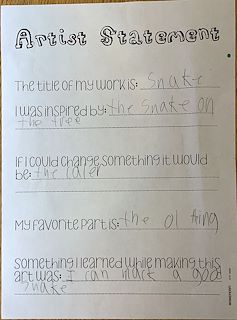 Artist Statement
The title of my work is: Snake
I was inspired by: the snake on
the tree
If I could change something it would
be: the caler
My favorite part is: the ol thing
Something I learned while making this
art was: I can mack a good
snake